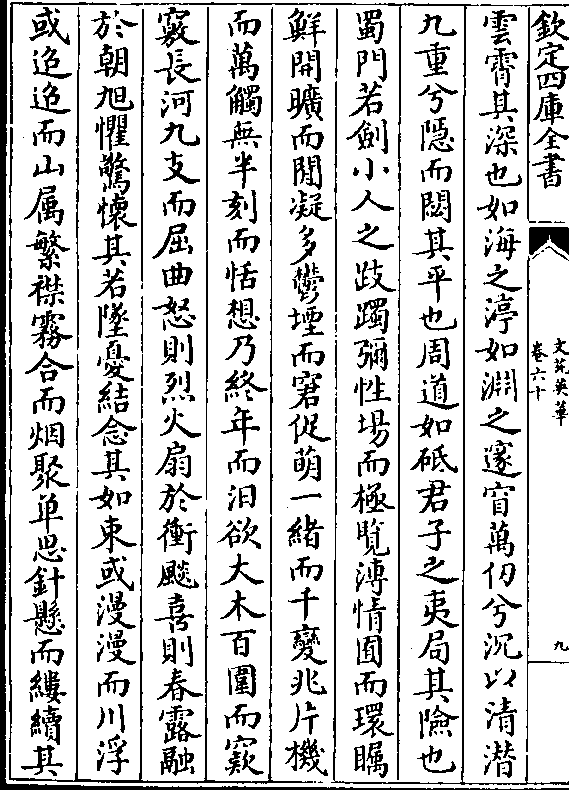 欽定四庫全書
文苑英華
卷六十
九
雲霄其深也如海之渟如淵之邃窅萬仞兮沉以清潛
九重兮隱而閟其平也周道如砥君子之夷局其險也
蜀門若劍小人之跂躅彌性場而極覽溥情囿而環矚
鮮開曠而閒凝多鬱堙而窘促萌一緒而千變兆片機
而萬觸無半刻而恬想乃終年而汨欲大木百圍而窾
竅長河九支而屈曲怒則烈火扇於衝飇喜則春露融
於朝旭懼驚懷其若墜憂結念其如束或漫漫而川浮
或迢迢而山属繁襟霧合而烟聚单思針懸而縷續其